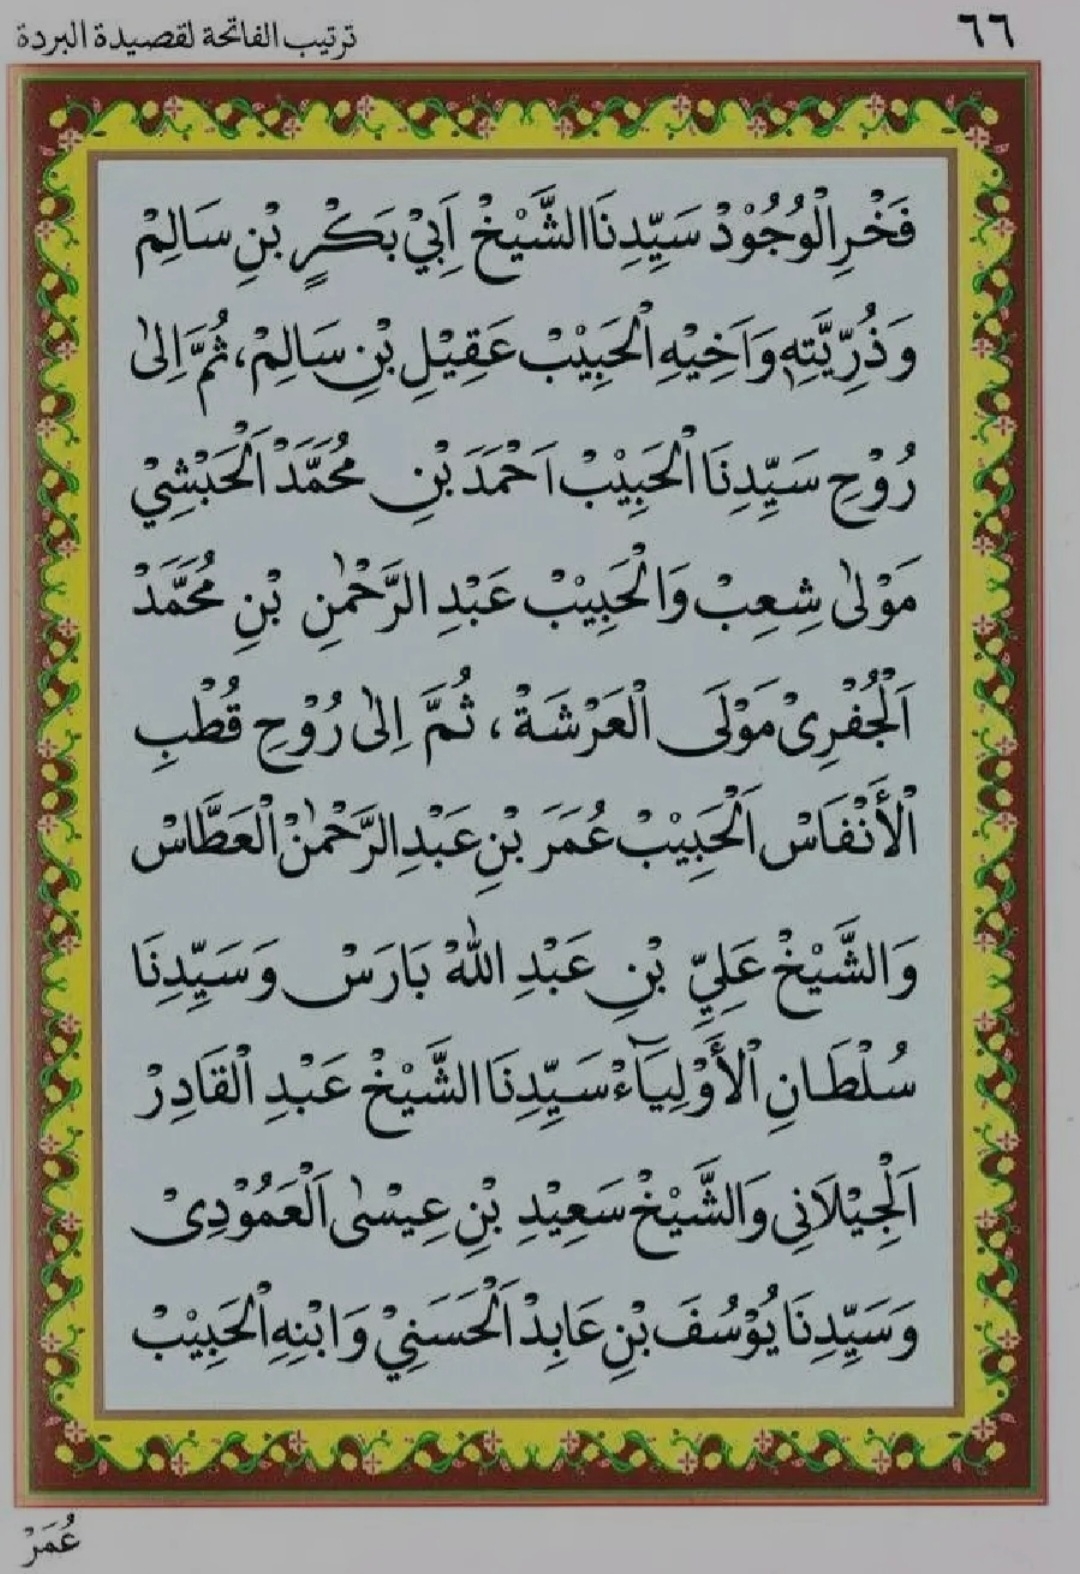 ٦٦
ترتيب الفاتحة لقصيدة البردة
فَخْرِالْوُجُوْدْ سَيِّدِنَاالشَّيْخْ اَبِيْ بَكْرٍ بْنِ سَالِمْ
وَذُرِّيَّتِهِ وَاَخِيْهِ الْحَبِيْبْ عَقِيْلِ بْنِ سَالِمْ، ثُمَّ اِلىٰ
رُوْحِ سَيِّدِنَا الْحَبِيْبْ اَحْمَدَ بْنِ مُحَمَّدْ اَلْحَبْشِيْ
مَوْلىٰ شِعِبْ وَالْحَبِيْبْ عَبْدِ الرَّحْمٰنِ بْنِ مُحَمَّدْ
اَلْجُفْرِىْ مَوْلَى الْعَرْشَةْ، ثُمَّ اِلىٰ رُوْحِ قُطْبِ
الْأَنْفَاسْ اَلْحَبِيْبْ عُمَرَ بْنِ عَبْدِ الرَّحْمٰنْ الْعَطَّاسْ
وَالشَّيْخْ عَلِيِّ بْنِ عَبْدِ اللهْ بَارَسْ وَسَيِّدِنَا
سُلْطَانِ الْأَوْلِيَآءْ سَيِّدِنَا الشَّيْخْ عَبْدِ الْقَادِرْ
اَلْجِيْلَانِى وَالشَّيْخْ سَعِيْدِ بْنِ عِيْسٰى اَلْعَمُوْدِىْ
وَسَيِّدِنَا يُوْسُفَ بْنِ عَابِدْ اَلْحَسَنِيْ وَابْنِهِ الْحَبِيْبْ
عُمَرْ